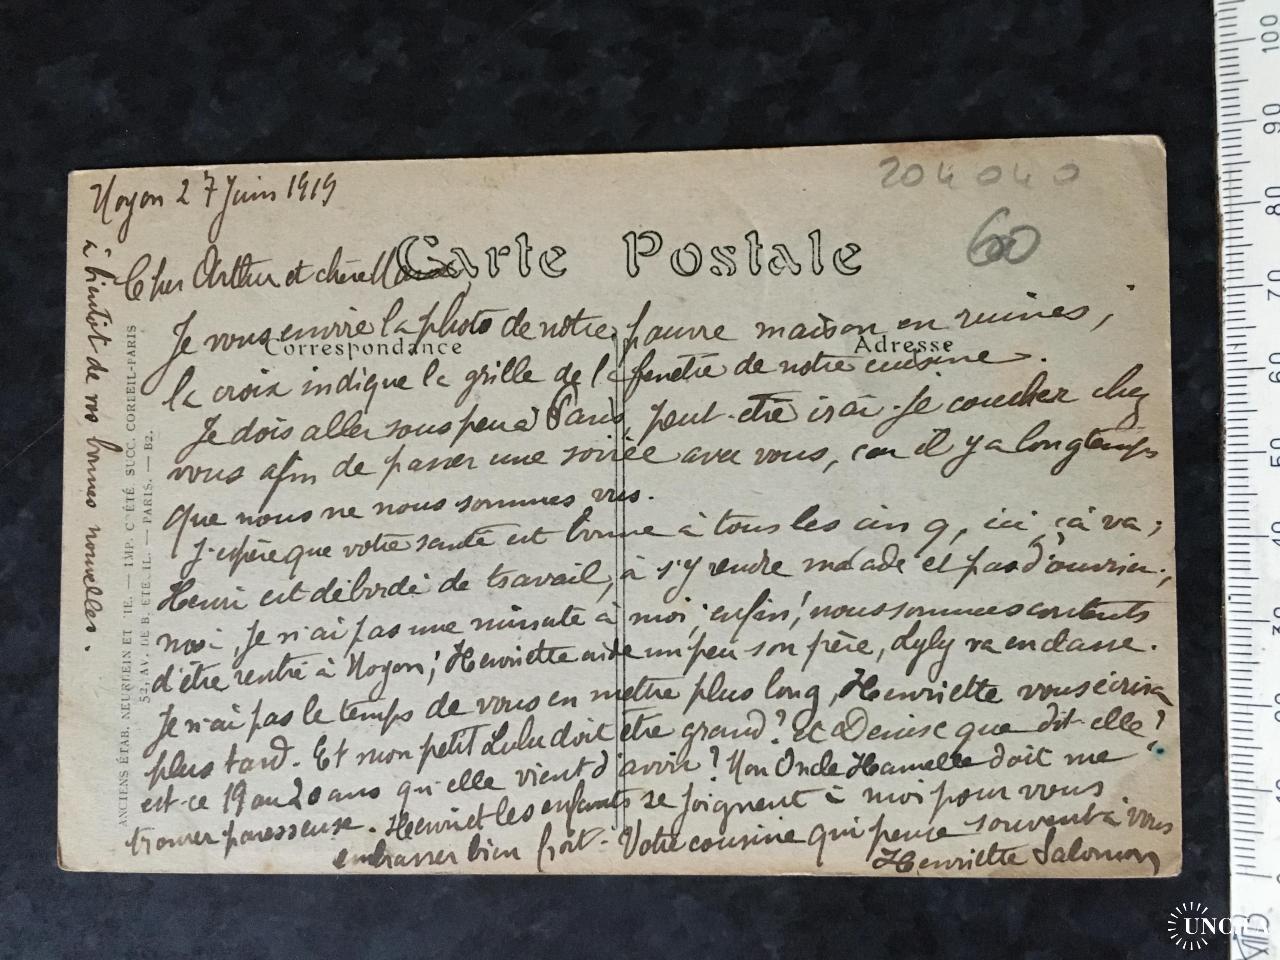 Noyon 27 Juin 1919
204040
60
Carte Postale
Cher Arthur et chère
Correspondance
Adresse
Je vous envoie la photo de notre pauvre maison en ruines,
la croix indique la grille de la fenêtre de notre cuisine.
Je dois aller sous peu à Paris, peut-être irai-je coucher chez
vous afin de passer une soirée avec vous, car il y a longtemps
que nous ne nous sommes vus.
J'espère que votre santé est bonne à tous les cinq, ici, ça va;
Henri est débordé de travail, à s'y rendre malade et pas d'ouvrier,
moi, je n'ai pas une minute à moi; enfin! nous sommes contents
d'être rentré à Noyon; Henriette aide un peu son frère, Lyly va en classe.
Je n'ai pas le temps de vous en mettre plus long, Henriette vous écrira
plus tard. Et mon petit Lulu doit être grand? et Denise que dit-elle?
est-ce 19 ou 20 ans qu'elle vient d'avoir? Mon Oncle Hamelle doit me
trouver paresseuse. Henri et les enfants se joignent à moi pour vous
embrasser bien fort. Votre cousine qui pense souvent à vous
Henriette Salomon
à bientôt de vos bonnes nouvelles.
ANCIENS ÉTAB. NEURDEIN ET CIE. — IMP. CRÉTÉ. SUCC. CORBEIL-PARIS
52, AV. DE BRETEUIL. — PARIS. — B2.
100
90
80
70
60
50
40
30
UNOVA